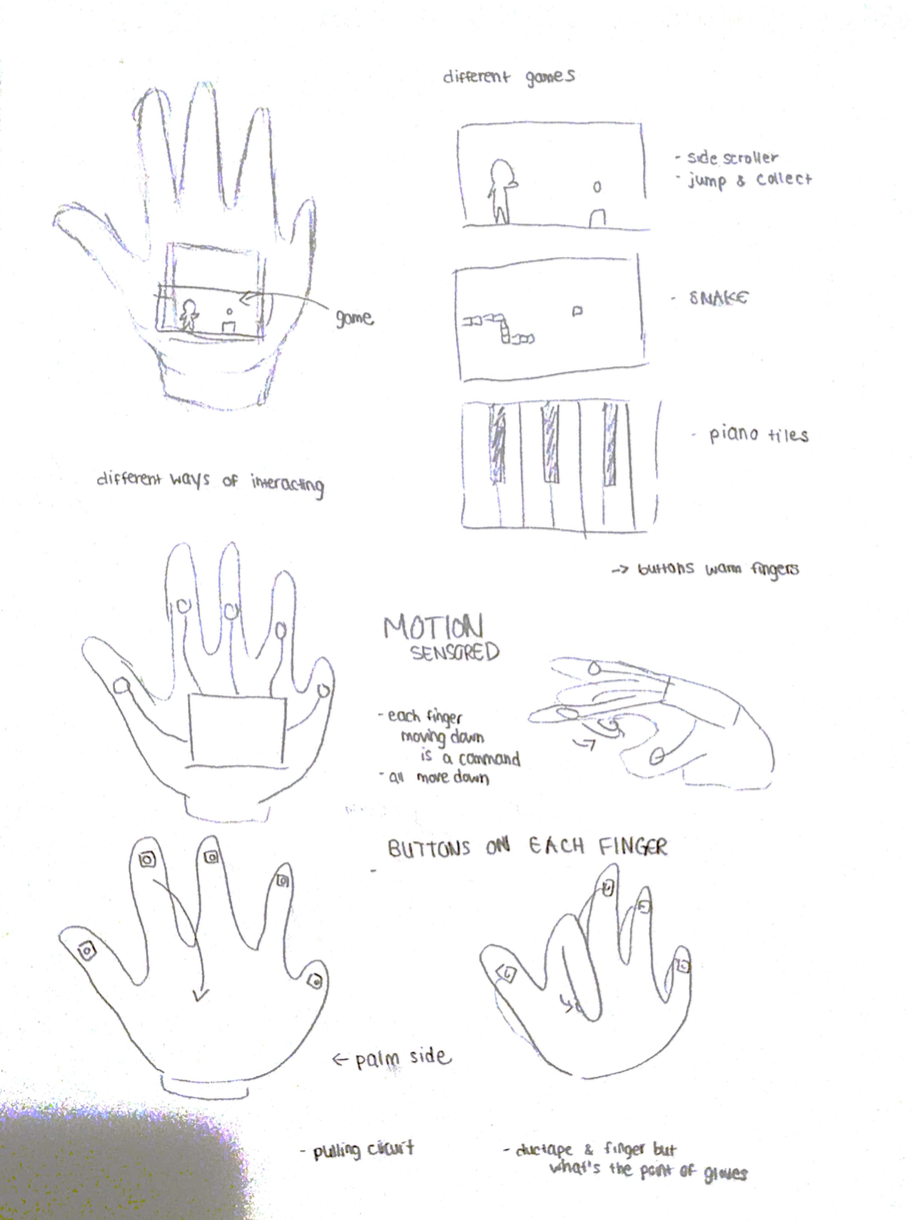 different games
- side scroller
- jump & collect
game
- SNAKE
- piano tiles
different ways of interacting
-> buttons warm fingers
MOTION
SENSORED
- each finger
moving down
is a command
- all move down
BUTTONS ON EACH FINGER
-
← palm side
- pulling circuit
- ductape & finger but
what's the point of gloves